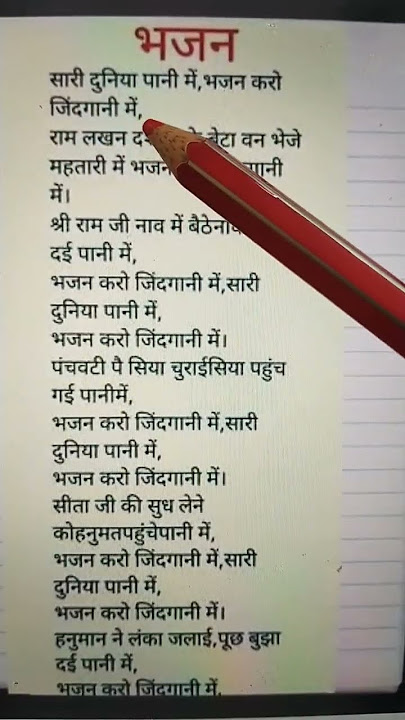 भजन
सारी दुनिया पानी में,भजन करो
जिंदगानी में,
राम लखन बेटा वन भेजे
महतारी में
में।
श्री राम जी नाव में
दई पानी में,
भजन करो जिंदगानी में,सारी
दुनिया पानी में,
भजन करो जिंदगानी में।
पंचवटी पै सिया चुराईसिया पहुंच
गई पानीमें,
भजन करो जिंदगानी में,सारी
दुनिया पानी में,
भजन करो जिंदगानी में।
सीता जी की सुध लेने
कोहनुमतपहुंचेपानी में,
भजन करो जिंदगानी में,सारी
दुनिया पानी में,
भजन करो जिंदगानी में।
हनुमान ने लंका जलाई,पूछ बुझा
दई पानी में,
भजन करो जिंदगानी में,